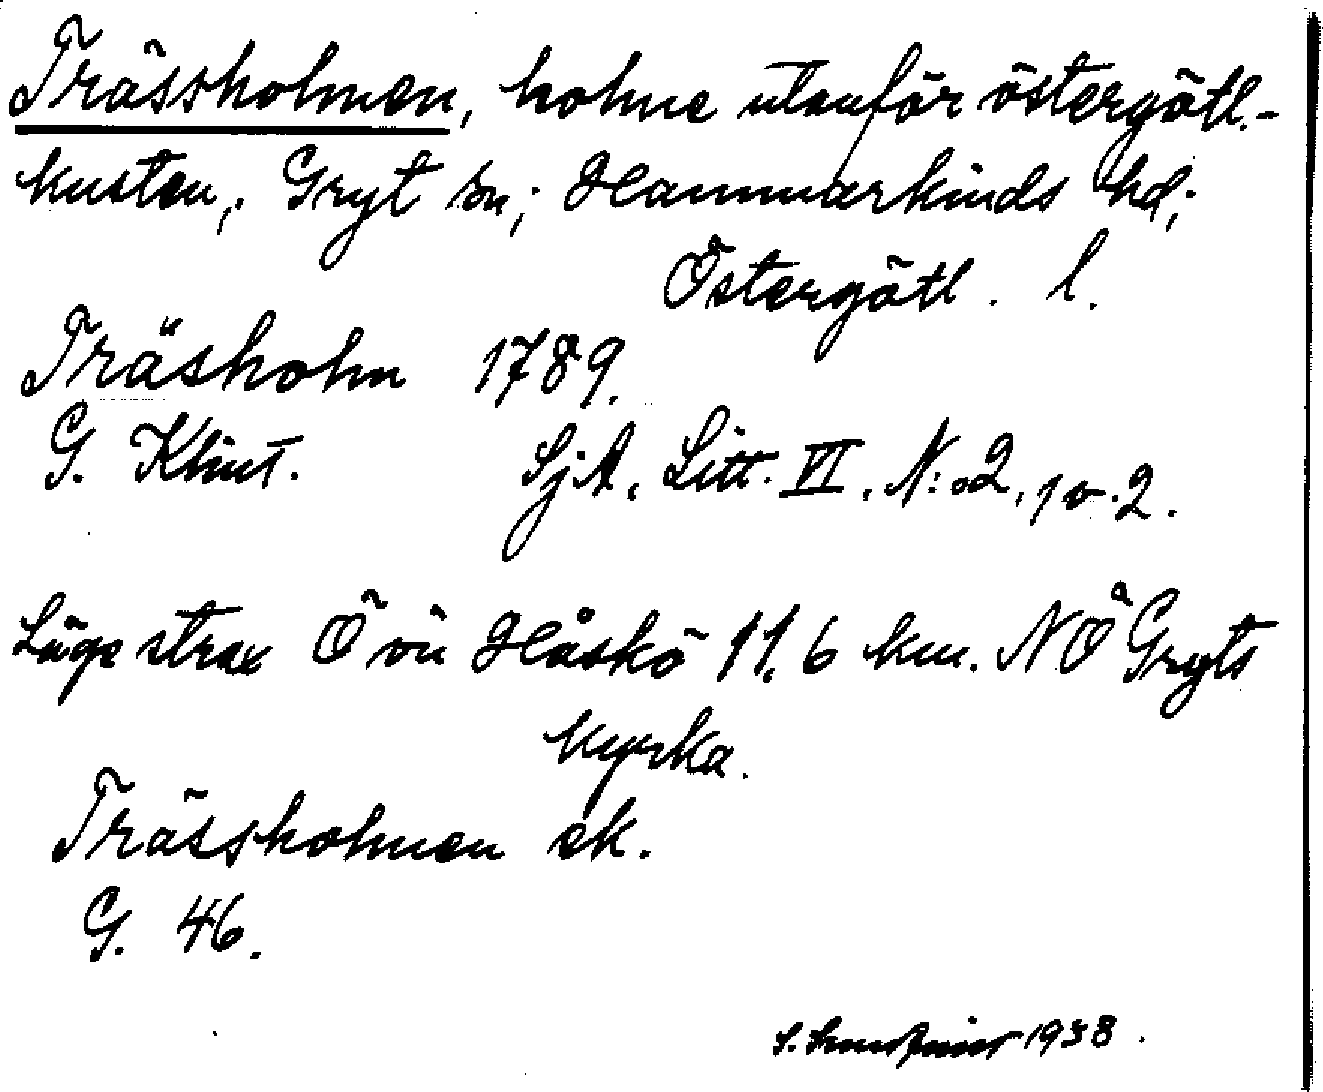 Trässholmen, holme utanför östergötl.-
kusten, Gryt sn; Hammarkinds hd;
Östergötl. l.
Träsholm 1789.
G. Klint. SjA, Litt. VI, N:o2, 10.2.
Läge strax Ö om Håskö 11,6 km. NÖ Gryts
kyrka.
Trässholmen ek.
G. 46.
S. 1938.